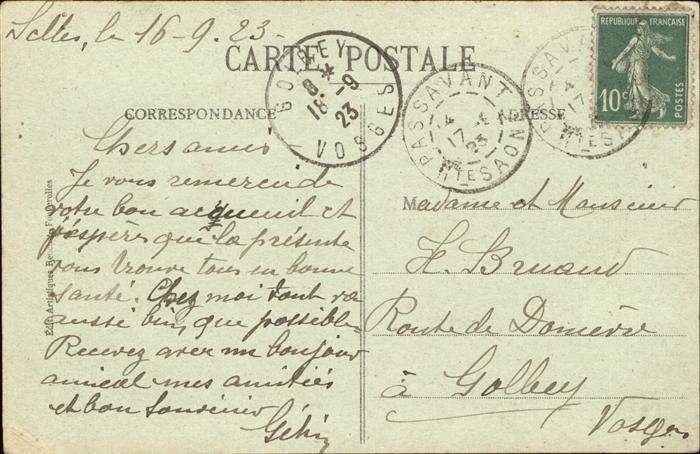 Selles, le 16-9.23-
CARTE POSTALE
GOLBEY
8 *
18 -9
23
VOSGES
PASSAVANT
17 -
23
HTE SAONE
PASSAVANT
17
HTE S
REPUBLIQUE FRANÇAISE
10 c
POSTES
CORRESPONDANCE
ADRESSE
Chers amis
Je vous remercie de
votre bon acqueuil et
j'espère que la présente
vous trouve tous en bonne
santé. Chez moi tout va
aussi bien que possible.
Recevez avec un bonjour
amical mes amitiés
et bon souvenir
Madame et Monsieur
H. Bruand
Route de Domèvre
à Golbey
Vosges
Edit. Artistiques